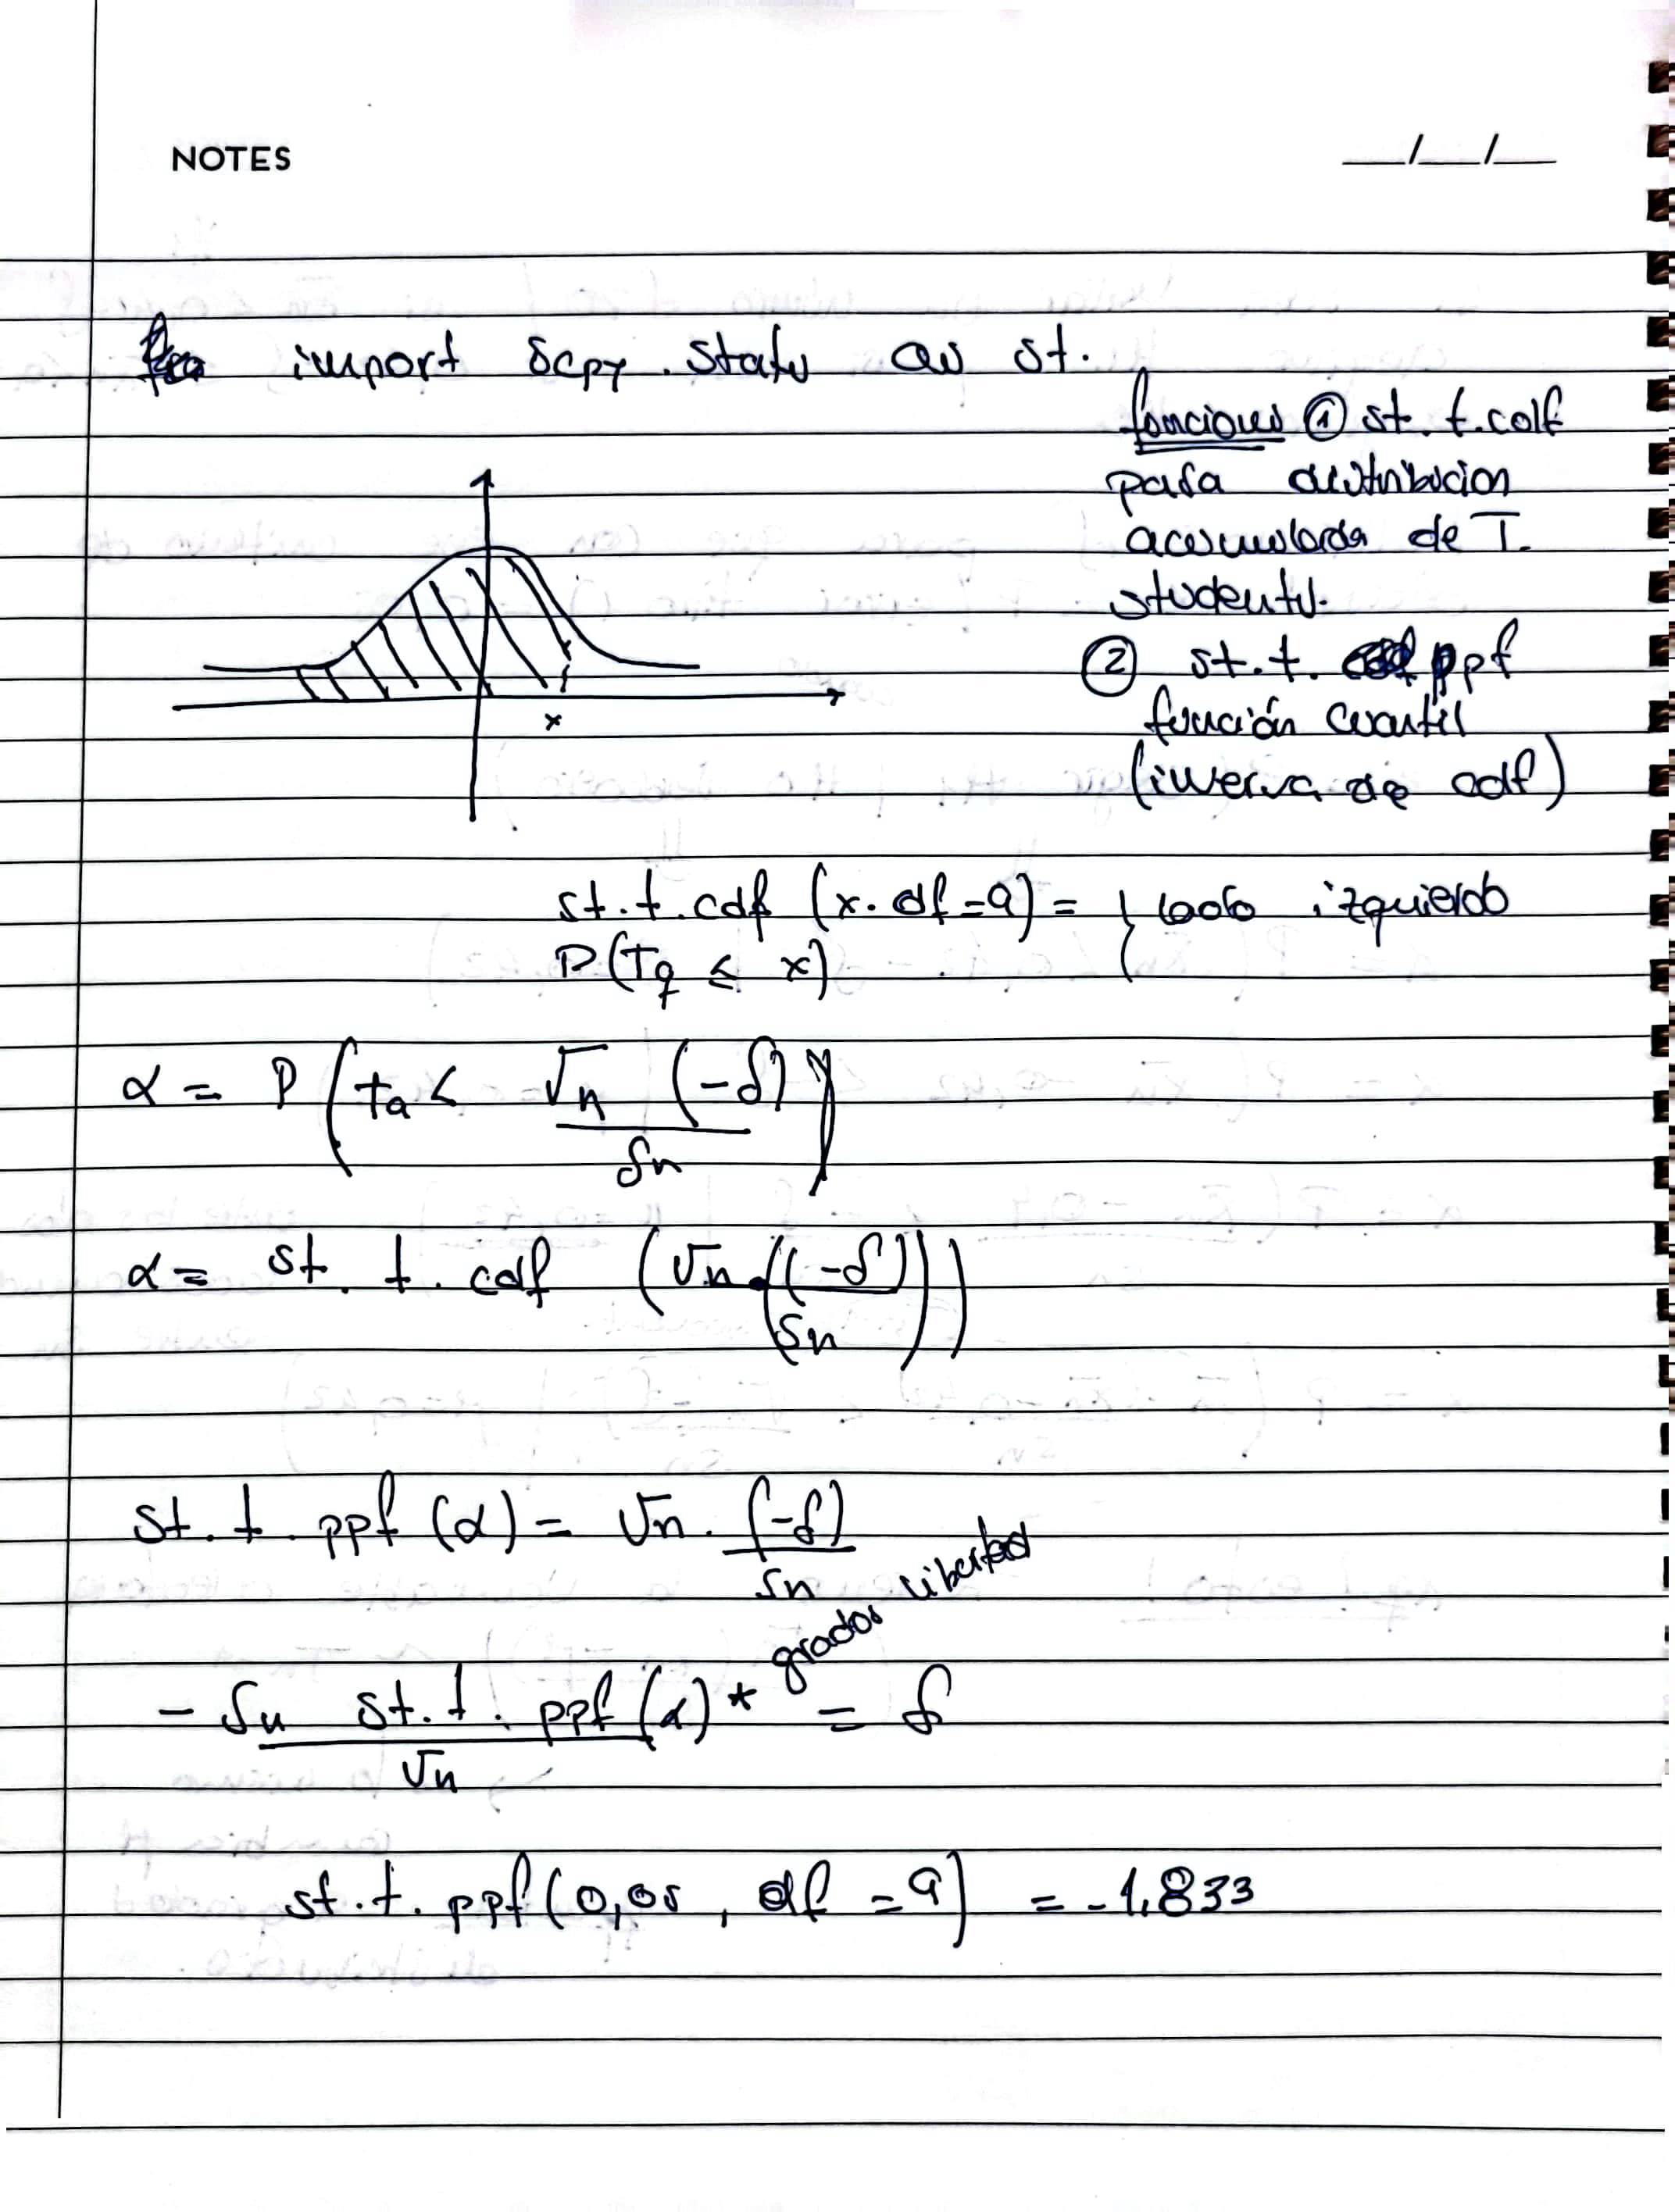 NOTES
__/__/__
import scpy. stats as st.
funciones ① st. t. cdf
para distribucion
acumulada de T.
students.
② st. t. ppf
función cuantil
(inversa de cdf)
x
st. t. cdf (x. df = 9) = { lado izquierdo
P(T9 ≤ x)
α = P ( t9 < √n (-δ) / Sn )
α = st. t. cdf (√n . ((-δ) / Sn))
st. t. ppf (α) = √n . (-δ) / Sn
- Sn st. t. ppf (α) * grados libertad / √n = δ
st. t. ppf (0,05 , df = 9) = -1,833